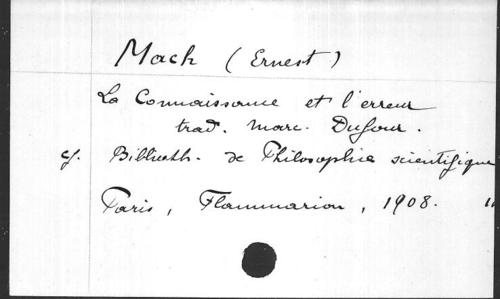 Mach (Ernest)
La Connaissance et l'erreur
trad. Marc. Dufour.
cf. Biblioth. de Philosophie scientifique
Paris, Flammarion, 1908.